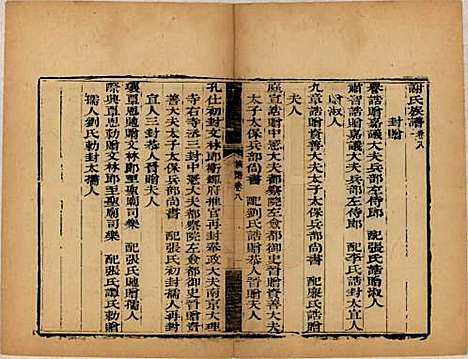 謝氏族譜卷八
封贈
誥贈嘉議大夫兵部左侍郎 配張氏誥贈淑人
誥贈嘉議大夫兵部左侍郎 配李氏誥封太宜人
晉贈淑人
九章誥贈資善大夫太子太保兵部尚書 配龐氏誥贈
夫人
誥贈中憲大夫都察院左僉都御史晉贈資善大夫
太子太保兵部尚書 配劉氏誥贈恭人晉贈夫人
卷八
孔仕初封文林郎 府推官再封奉政大夫南京大理
寺右寺丞三封中憲大夫都察院左僉都御史晉贈資
善大夫太子太保兵部尚書 配張氏初封孺人再封
宜人三封恭人晉贈夫人
襄 恩贈文林郎至聖廟司樂 配張氏贈孺人
際典覃恩勅贈文林郎至聖廟司樂 配張氏勅贈
孺人劉氏勅封太孺人